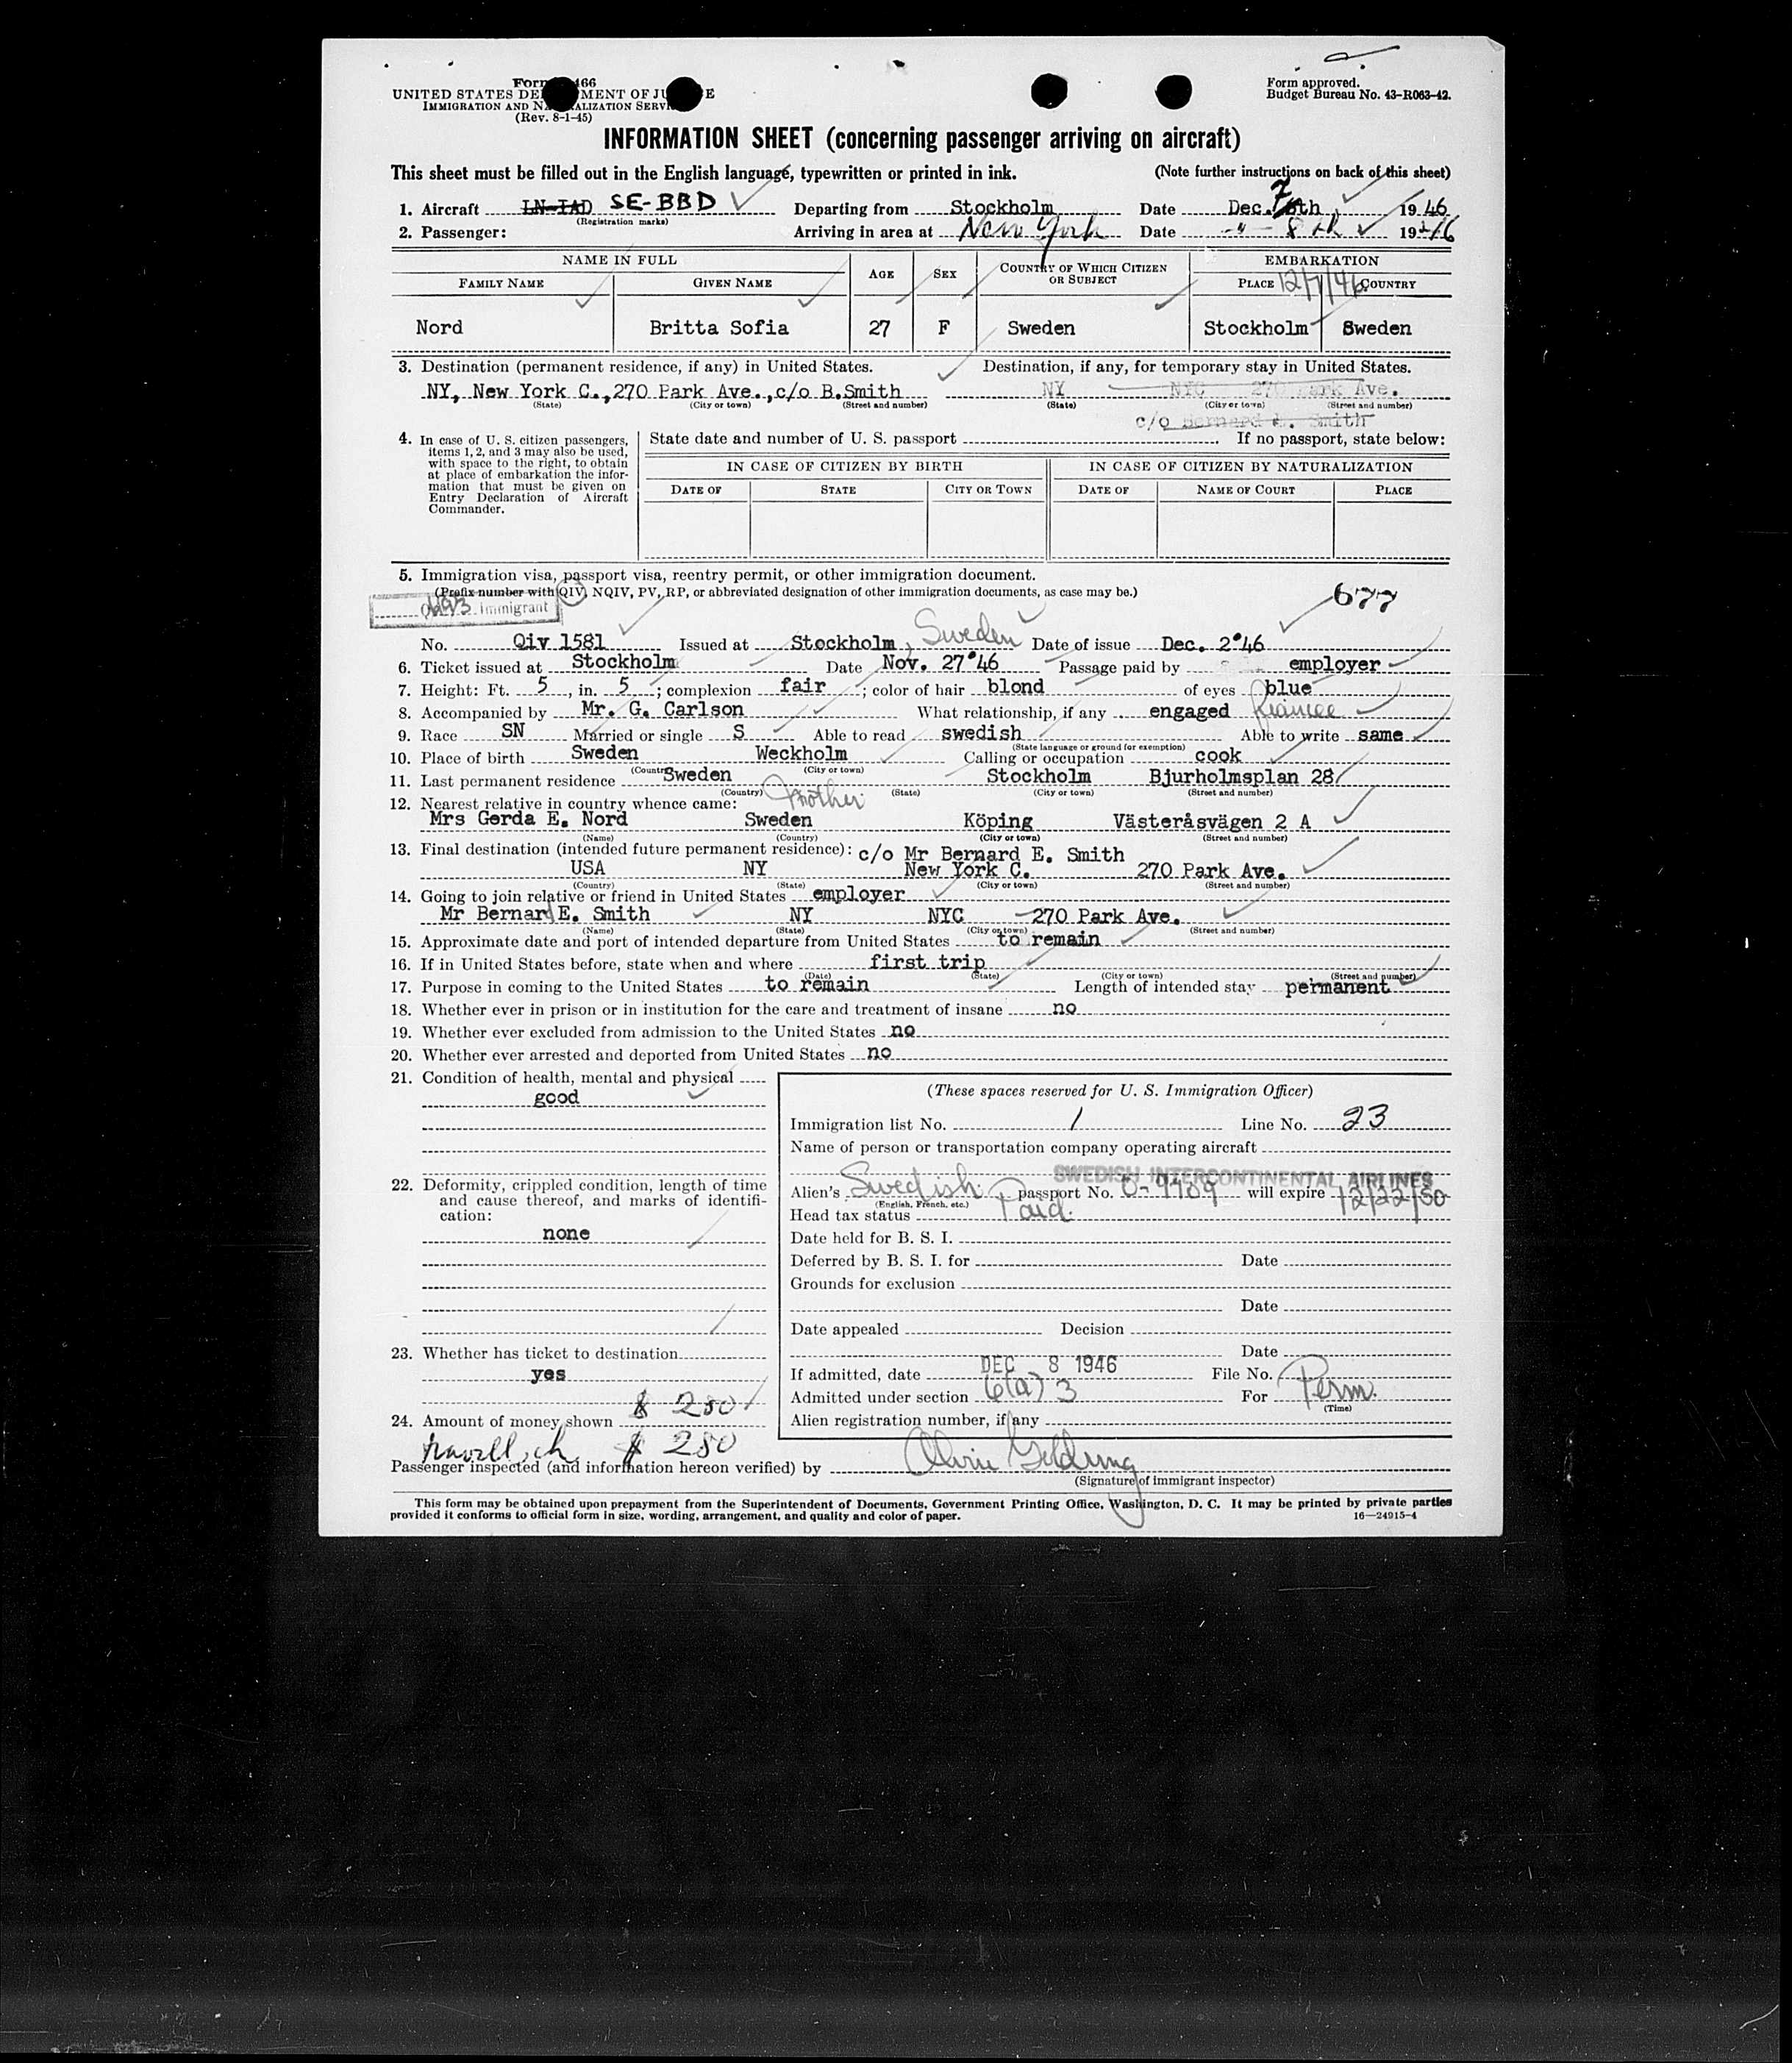 Form 466
UNITED STATES DE MENT OF JU E
IMMIGRATION AND NA ALIZATION SERV
(Rev. 8-1-45)
Form approved.
Budget Bureau No. 43-R063-42.
INFORMATION SHEET (concerning passenger arriving on aircraft)
This sheet must be filled out in the English language, typewritten or printed in ink. (Note further instructions on back of this sheet)
1. Aircraft LN-IAD SE-BBD Departing from Stockholm Date Dec. 7th 1946
(Registration marks)
2. Passenger: Arriving in area at New York Date " 8th 1946
NAME IN FULL AGE SEX COUNTRY OF WHICH CITIZEN OR SUBJECT EMBARKATION
FAMILY NAME GIVEN NAME PLACE 12/7/46 COUNTRY
Nord Britta Sofia 27 F Sweden Stockholm Sweden
3. Destination (permanent residence, if any) in United States. Destination, if any, for temporary stay in United States.
NY, New York C.,270 Park Ave.,c/o B.Smith NY NYC 270 Park Ave.
(State) (City or town) (Street and number) (State) (City or town) (Street and number)
c/o Bernard E. Smith
4. In case of U. S. citizen passengers, items 1, 2, and 3 may also be used, with space to the right, to obtain at place of embarkation the information that must be given on Entry Declaration of Aircraft Commander.
State date and number of U. S. passport If no passport, state below:
IN CASE OF CITIZEN BY BIRTH IN CASE OF CITIZEN BY NATURALIZATION
DATE OF STATE CITY OR TOWN DATE OF NAME OF COURT PLACE
5. Immigration visa, passport visa, reentry permit, or other immigration document.
(Prefix number with QIV, NQIV, PV, RP, or abbreviated designation of other immigration documents, as case may be.) 677
Immigrant
No. Qiv 1581 Issued at Stockholm, Sweden Date of issue Dec. 2°46
6. Ticket issued at Stockholm Date Nov. 27°46 Passage paid by employer
7. Height: Ft. 5, in. 5; complexion fair; color of hair blond of eyes blue
8. Accompanied by Mr. G. Carlson What relationship, if any engaged fiancee
9. Race SN Married or single S Able to read swedish Able to write same
(State language or ground for exemption)
10. Place of birth Sweden Weckholm Calling or occupation cook
(Country) (City or town)
11. Last permanent residence Sweden Stockholm Bjurholmsplan 28
(Country) (State) (City or town) (Street and number)
12. Nearest relative in country whence came: Mother
Mrs Gerda E. Nord Sweden Köping Västeråsvägen 2 A
(Name) (Country) (City or town) (Street and number)
13. Final destination (intended future permanent residence): c/o Mr Bernard E. Smith
USA NY New York C. 270 Park Ave.
(Country) (State) (City or town) (Street and number)
14. Going to join relative or friend in United States employer
Mr Bernard E. Smith NY NYC 270 Park Ave.
(Name) (State) (City or town) (Street and number)
15. Approximate date and port of intended departure from United States to remain
16. If in United States before, state when and where first trip
(Date) (State) (City or town) (Street and number)
17. Purpose in coming to the United States to remain Length of intended stay permanent
18. Whether ever in prison or in institution for the care and treatment of insane no
19. Whether ever excluded from admission to the United States no
20. Whether ever arrested and deported from United States no
21. Condition of health, mental and physical
good
22. Deformity, crippled condition, length of time and cause thereof, and marks of identification:
none
23. Whether has ticket to destination
yes
$ 280
24. Amount of money shown
$ 280
(These spaces reserved for U. S. Immigration Officer)
Immigration list No. 1 Line No. 23
Name of person or transportation company operating aircraft
SWEDISH INTERCONTINENTAL AIRLINES
Alien's Swedish passport No. will expire 12/22/50
(English, French, etc.)
Head tax status Paid.
Date held for B. S. I.
Deferred by B. S. I. for Date
Grounds for exclusion
Date
Date appealed Decision
Date
If admitted, date DEC 8 1946 File No.
Admitted under section 6(a) 3 For Perm.
(Time)
Alien registration number, if any
Passenger inspected (and information hereon verified) by
(Signature of immigrant inspector)
This form may be obtained upon prepayment from the Superintendent of Documents, Government Printing Office, Washington, D. C. It may be printed by private parties
provided it conforms to official form in size, wording, arrangement, and quality and color of paper. 16—24915-4